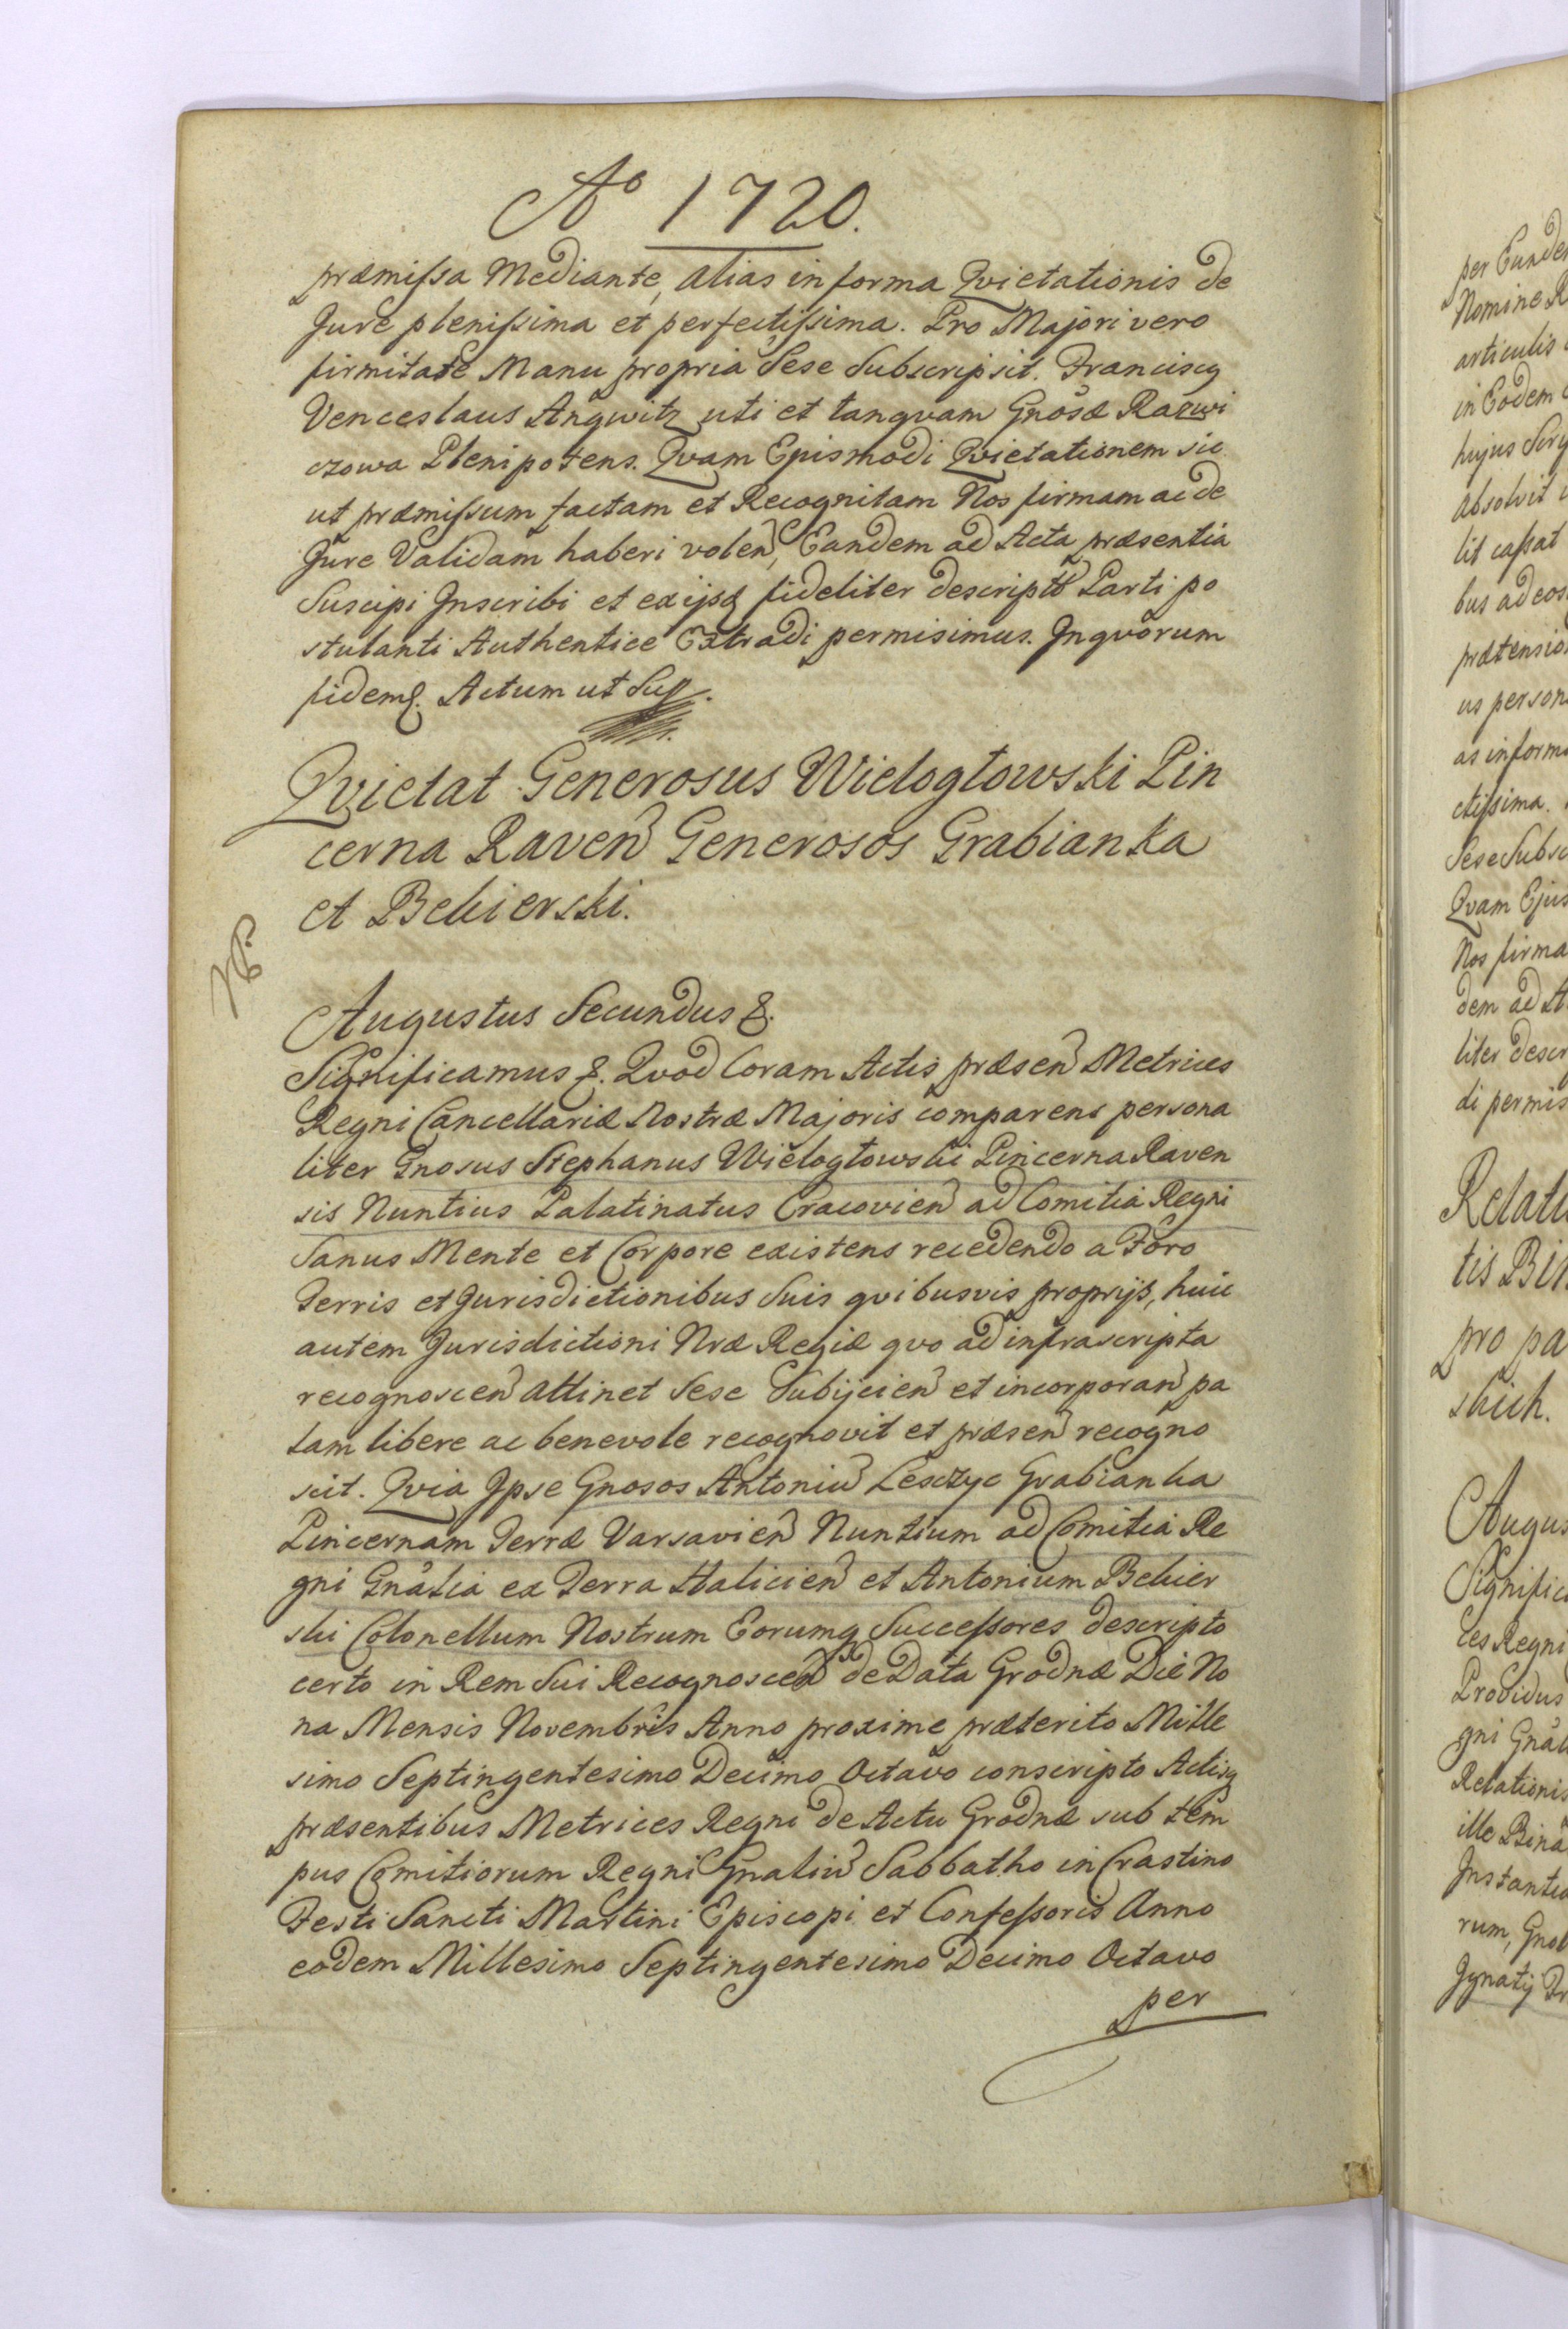 Aº 1720.
præmissa Mediante, alias in forma Qvietationis de
Jure plenissima et perfectissima. Pro Majori vero
firmitate Manu propria Sese Subscripsit. Franciscq
Venceslaus Angwitz uti et tanqvam Gnosæ Razwi
czowa Plenipotens. Qvam Ejusmodi Qvietationem sic
ut præmissum factam et Recognitam Nos firmam ac de
Jure Validam haberi volen, Eandem ad Acta præsentia
Suscipi Inscribi et ex ijsq fideliter descript Parti po
stulanti Authentice Extradi permisimus. In qvorum
fidem &. Actum ut Sup.
Qvietat Generosus Wielogłowski Pin
cerna Raven Generosos Grabianka
et Bekierski.
Augustus Secundus &.
Significamus &. Qvod Coram Actis præsen Metrices
Regni Cancellariæ Nostræ Majoris comparens persona
liter Gnosus Stephanus Wielogłowski Pincerna Raven
sis Nuntius Palatinatus Cracovien ad Comitia Regni
Sanus Mente et Corpore existens recedendo a Foro
Terris et Jurisdictionibus Suis qvibusvis proprijs, huic
autem Jurisdictioni Nræ Regiæ qvo ad infrascripta
recognoscen attinet Sese Subijcien et incorporan pa
lam libere ac benevole recognovit et præsen recogno
scit. Qvia Ipse Gnosos Antoniu Leszczyc Grabianka
Pincernam Terræ Varsavien Nuntium ad Comitia Re
gni Gnalia ex Terra Halicien et Antonium Bekier
ski Colonellum Nostrum Eorumq Successores descripto
certo in Rem Sui Recognoscen de Data Grodnæ Die No
na Mensis Novembris Anno proxime præterito Mille
simo Septingentesimo Decimo Octavo conscripto Actisq
præsentibus Metrices Regni de Actu Grodnæ sub tem
pus Comitiorum Regni Gnaliu Sabbatho in Crastino
Festi Sancti Martini Episcopi et Confessoris Anno
eodem Millesimo Septingentesimo Decimo Octavo
per
per Eunde
Nomine R
articulis
in Eodem
hujus
absolvit
lit cassat
bus ad eos
prætensio
us person
as inform
ctissima.
Sese Subsc
Qvam Ejus
Nos firma
dem ad A
liter descr
di permis
Relati
tis Bin
pro pa
skich.
Augus
Signific
ces Regni
Providus
gni Gnal
Relationis
ille Bina
Instantia
rum, Gnob
Ignatij